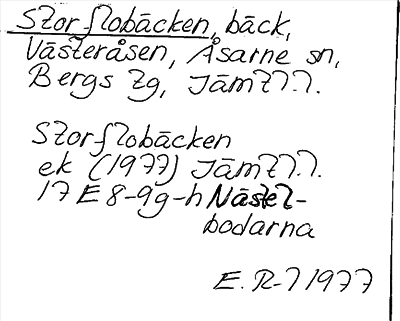 Storflobäcken, bäck,
Västeråsen, Åsarne sn,
Bergs tg, Jämtl.
Storflobäcken
ek (1977) Jämtl.
17 E 8-9g-h Nästel-
bodarna
E. R-l 1977